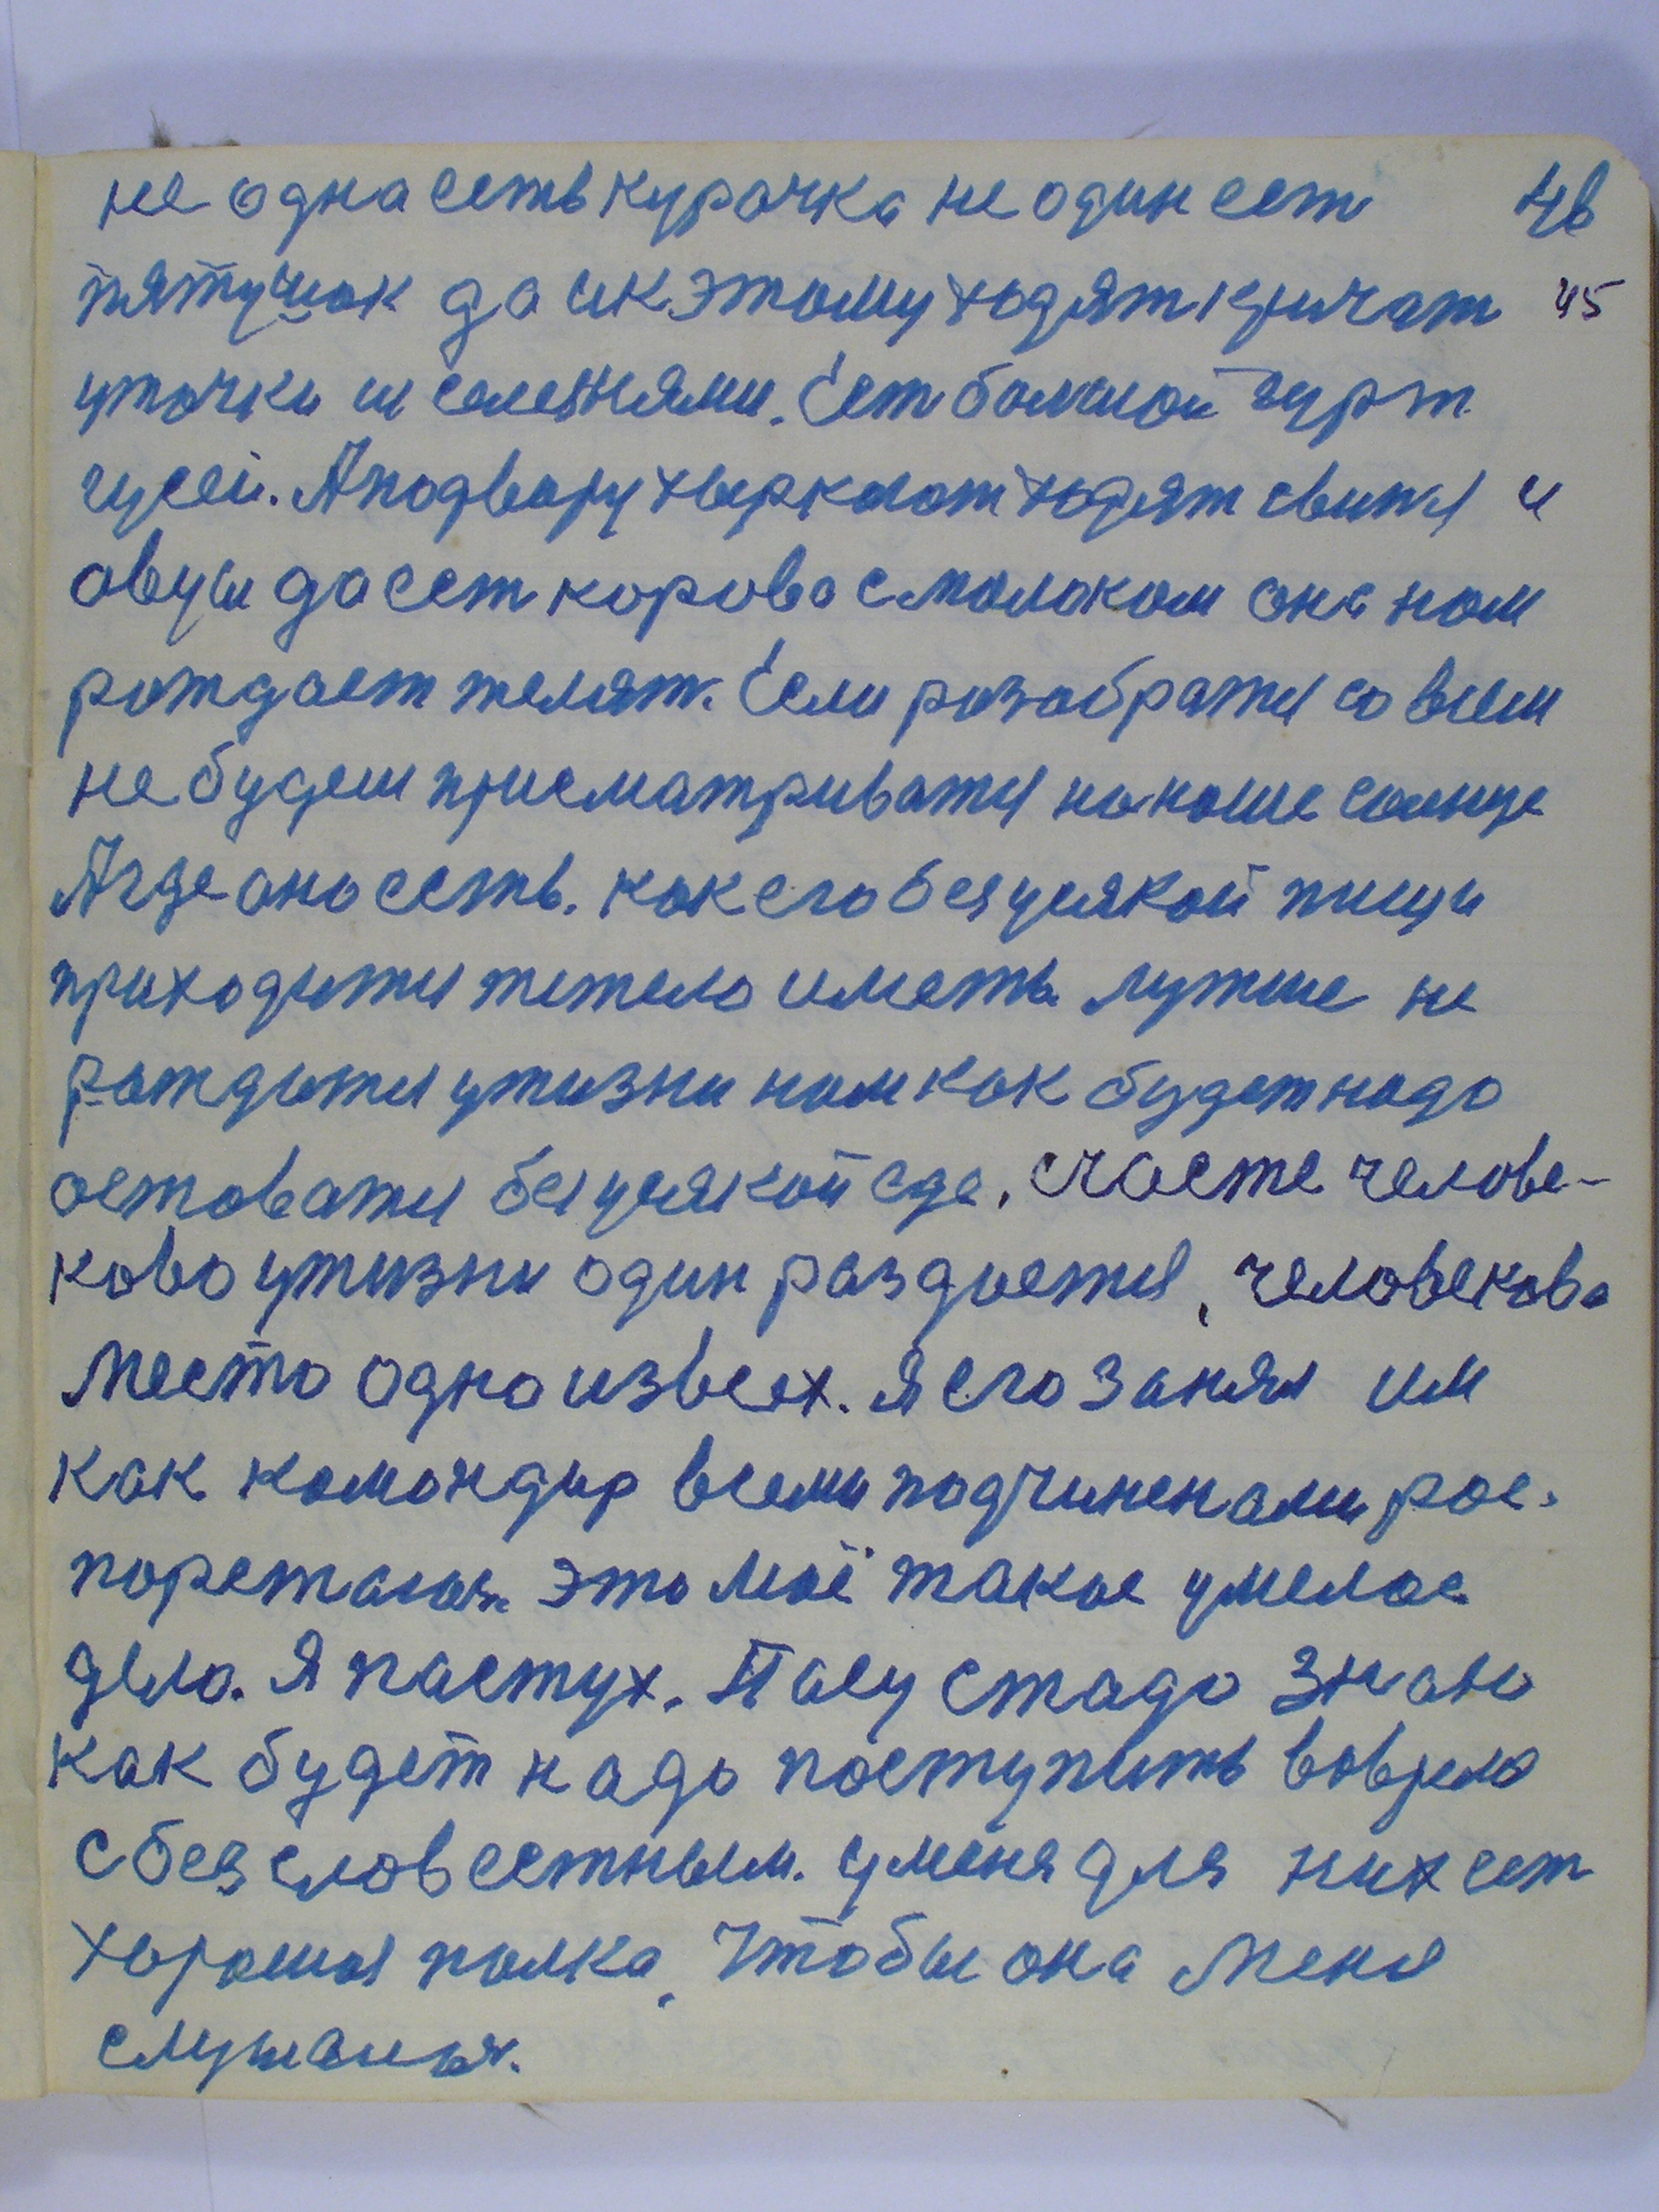 не одна есть курачка не один ест 46
пятушок да и к этому ходят кричат 45
уточки и селезнями. Ест большой гурт
гусей. А по двору хвркают ходят свиня и
овци да ест корова с молоком она нам
рождает телят. Если розобратся со всем
не будеш присматриватся на наше солнце
А где оно есть. как его без усякой пищи
приходится тежело иметь. лутше не
рождатся у жизни нам как будет надо
оставатся без усякой еде. счасте челове-
ково у жизни один раз дается, человекова
место одно из всех. Я его занял им
как командир всеми подчиненами рос-
порежаюсь. это моё такое умелое
дело. Я пастух. Пасу стадо знаю
как будет надо поступить во время
с безсловестным. у меня для них ест
хорошая палка, чтобы она меня
слушались.